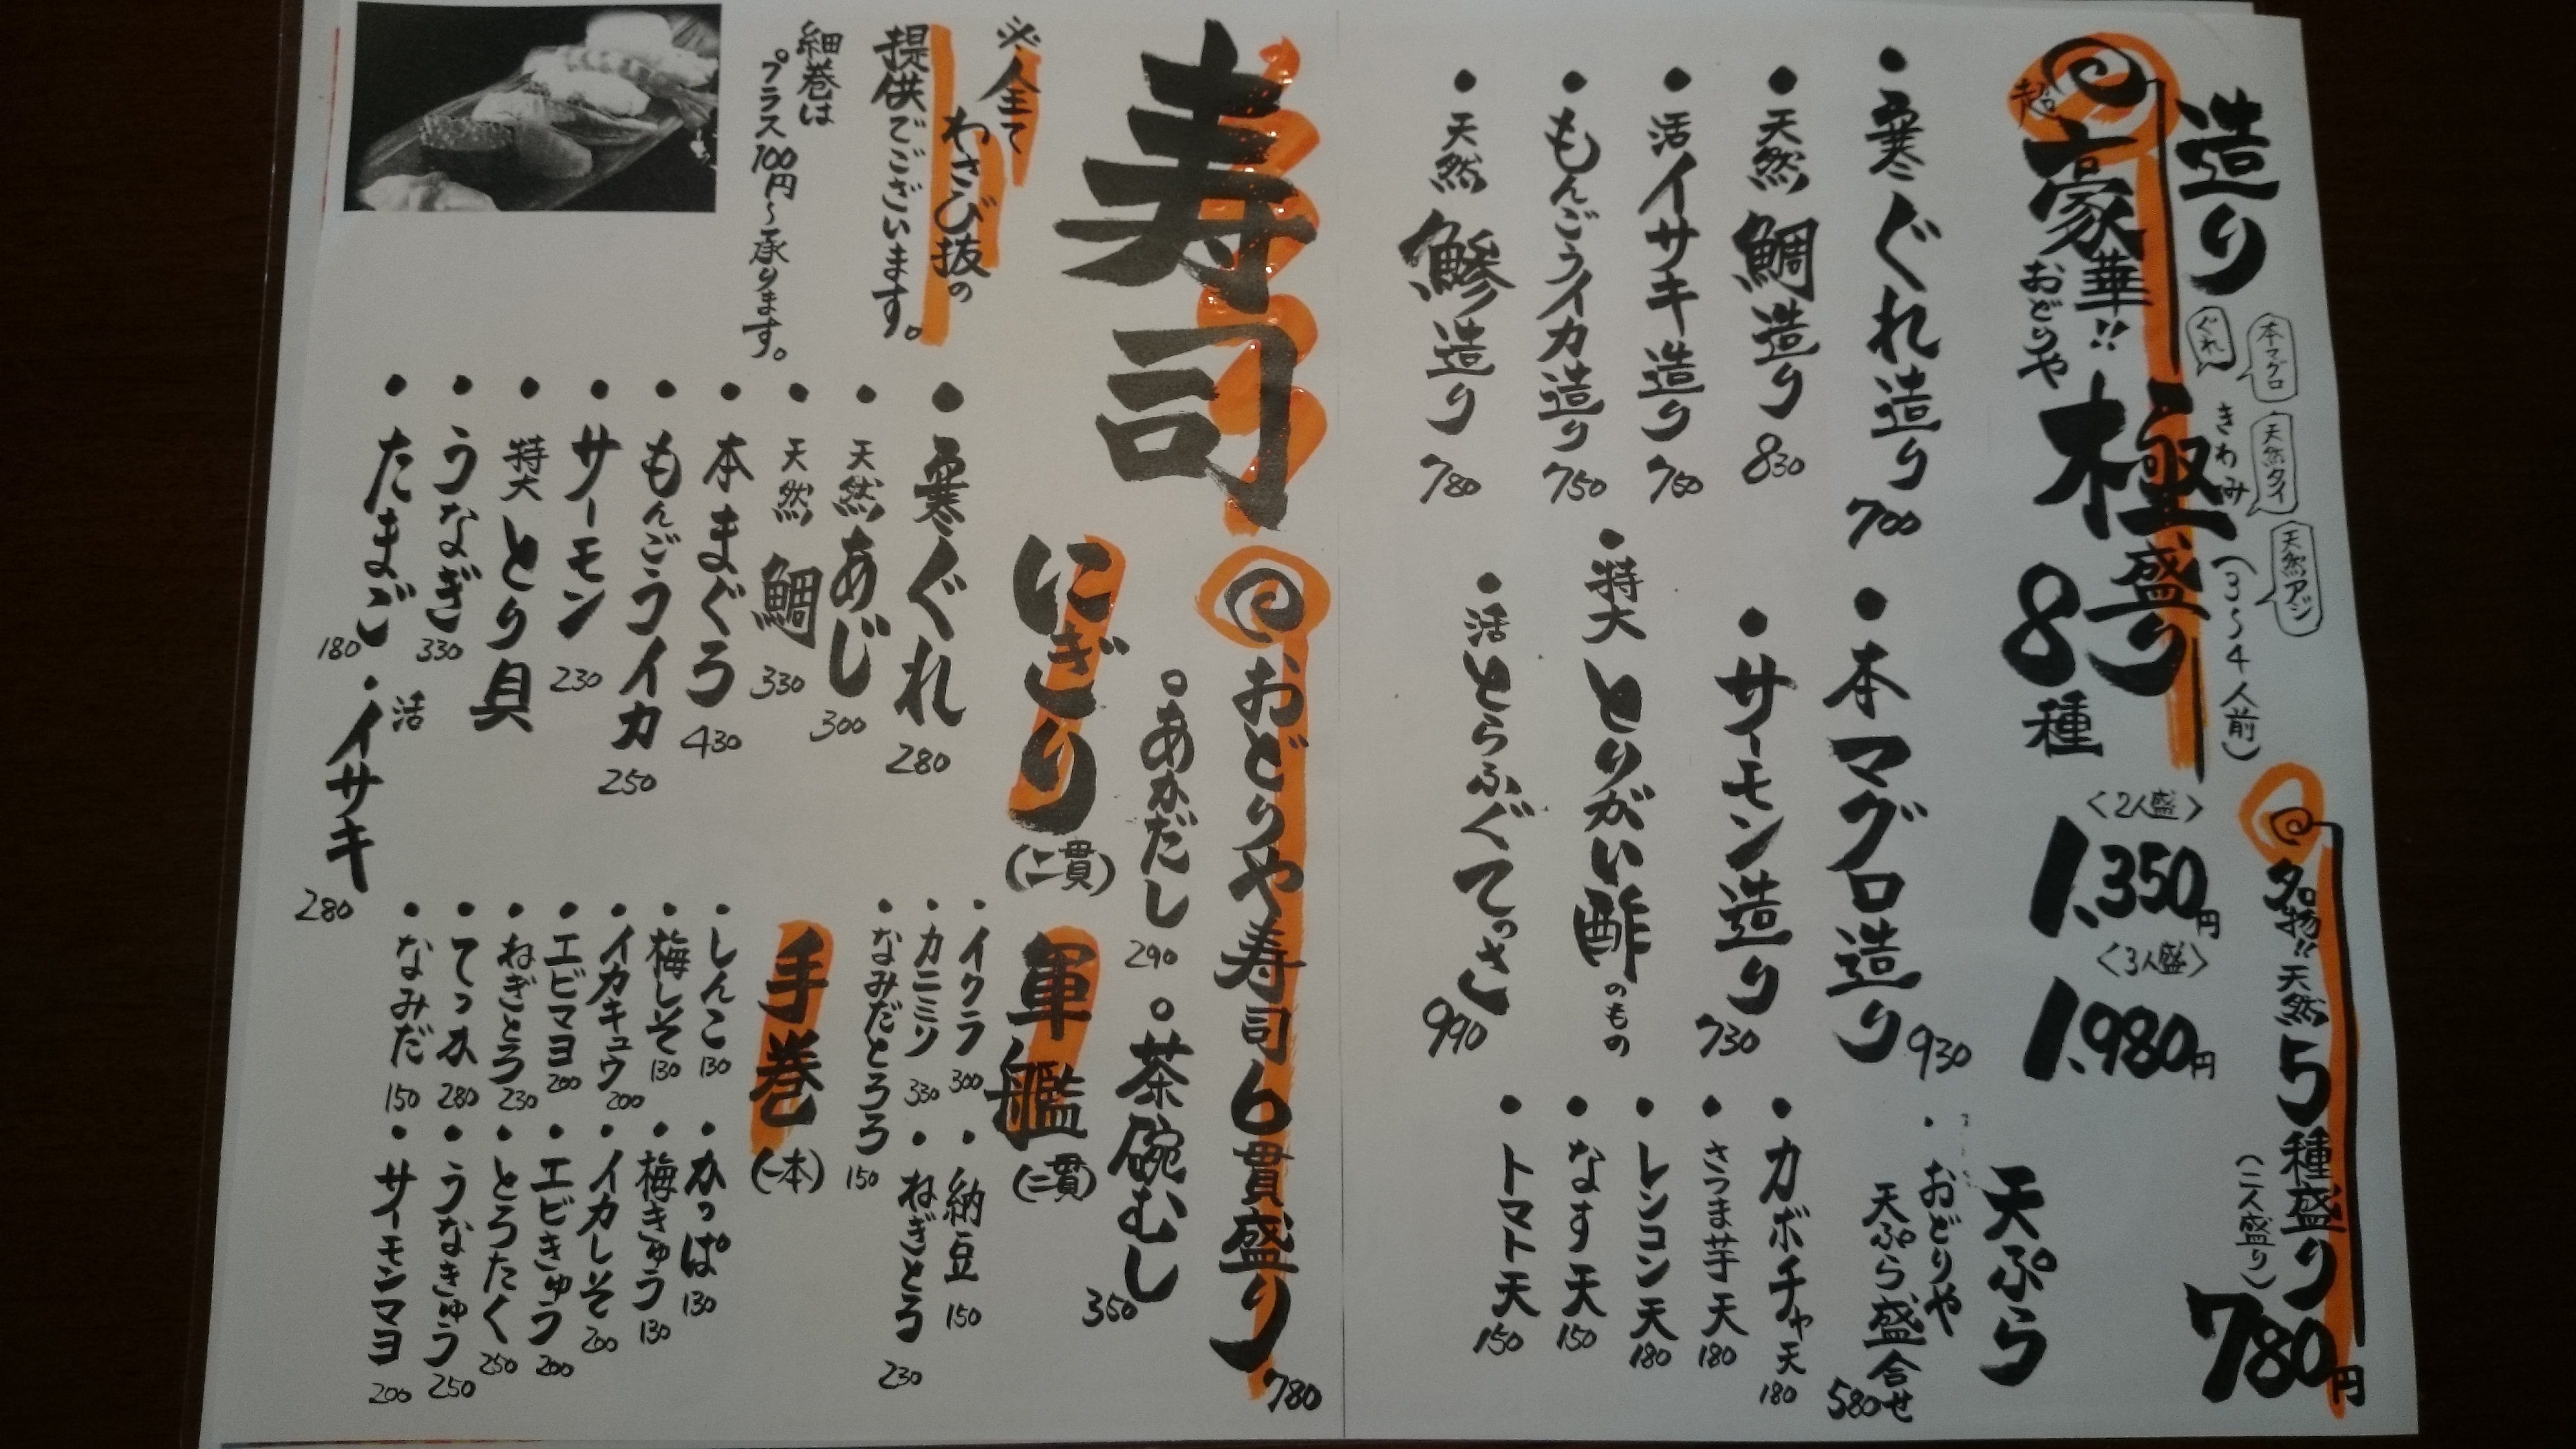 造り
本マグロ
ぐれ
天然タイ
天然アジ
超豪華!!
おどりや
きわみ
極盛り
(3〜4人前)
8種
<2人盛>
1,350円
<3人盛>
1,980円
名物!!天然5種盛り
(二人盛り)
780円
・寒ぐれ造り 700
・天然鯛造り 830
・活イサキ造り 750
・もんごうイカ造り 750
・天然鯵造り 780
・本マグロ造り 930
・サーモン造り 730
・特大とりがい酢のもの
・活とらふぐてっさ 990
天ぷら
・おどりや
天ぷら盛合せ 580
・カボチャ天 180
・さつま芋天 180
・レンコン天 180
・なす天 150
・トマト天 150
寿司
おどりや寿司6貫盛り 780
。あかだし 290
。茶碗むし 350
※全て
わさび抜の
提供でございます。
細巻は
プラス100円〜承ります。
にぎり(二貫)
・寒ぐれ 280
・天然あじ 300
・天然鯛 330
・本まぐろ 430
・もんごうイカ 250
・サーモン 230
・特大とり貝
・うなぎ 330
・たまご 180
・活イサキ 280
軍艦(二貫)
・イクラ 300
・カニミソ 330
・なみだとろろ 150
・納豆 150
・ねぎとろ 230
手巻(一本)
・しんこ 130
・梅しそ 130
・イカキュウ 200
・エビマヨ 200
・ねぎとろ 230
・てっか 280
・なみだ 150
・かっぱ 130
・梅きゅう 130
・イカしそ 200
・エビきゅう 200
・とろたく 250
・うなきゅう 250
・サーモンマヨ 200